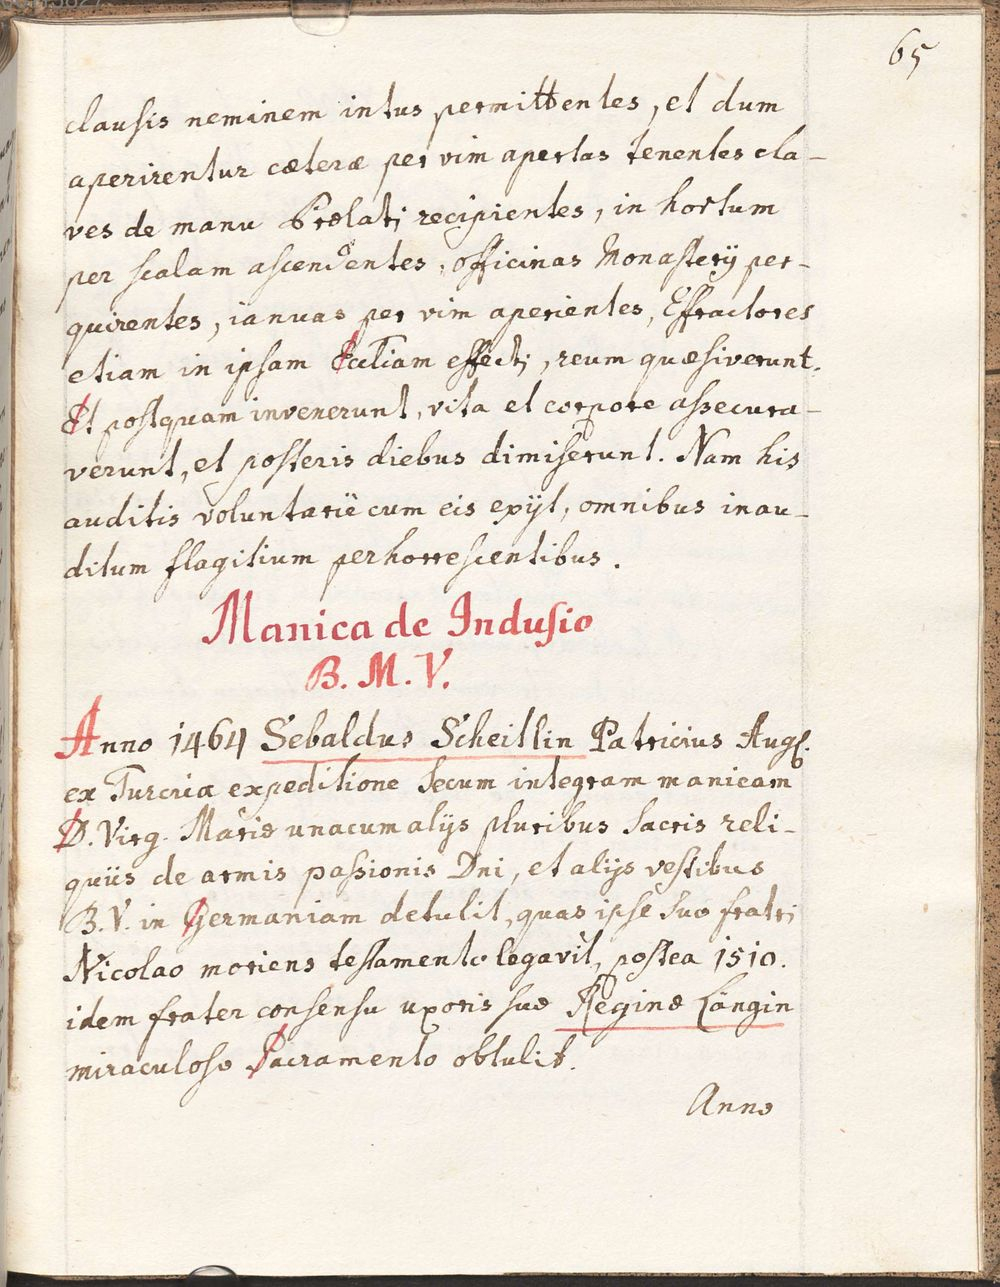 65
clausis neminem intus permittentes, et dum
aperirentur cæteræ per vim apertas tenentes cla-
ves de manu Prælatj recipientes, in hortum
per scalam ascendentes, officinas Monasterij per-
quirentes, ianuas per vim aperientes, Effractores
etiam in ipsam Eccliam effectj, reum quæsiverunt.
Et postquam invenerunt, vita et corpore assecura-
verunt, et posteris diebus dimiserunt. Nam his
auditis voluntariè cum eis exijt, omnibus inau-
ditum flagitium perhorrescentibus.
Manica de Indusio
B. M. V.
Anno 1464 Sebaldus Scheillin Patricius Aug.
ex Turcica expeditione secum integram manicam
D. Virg. Mariæ unacum alijs pluribus sacris reli-
quiis de armis passionis Dni, et alijs vestibus
B. V. in Germaniam detulit, quas ipse suo fratri
Nicolao moriens testamento legavit, postea 1510.
idem frater consensu uxoris suæ Reginæ Längin
miraculoso Sacramento obtulit.
Anno